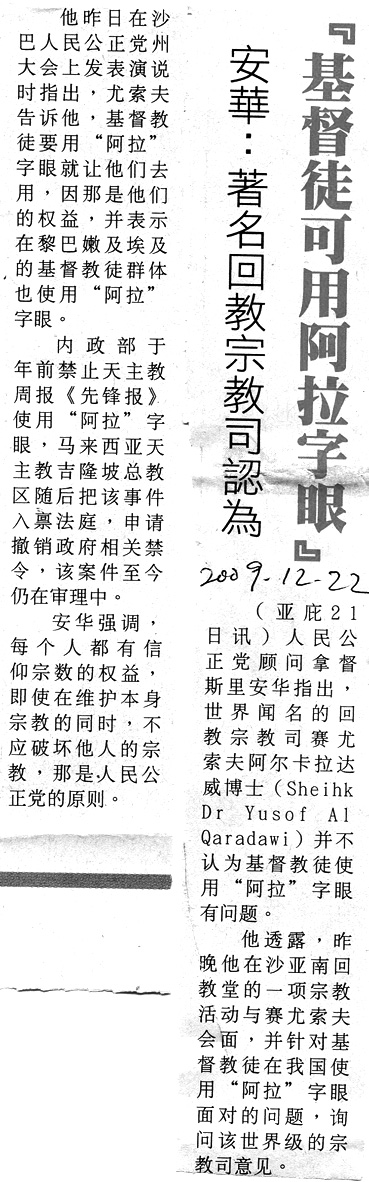 安華：著名回教宗教司認為
『基督徒可用阿拉字眼』
2009-12-22
（亚庇21
日讯）人民公
正党顾问拿督
斯里安华指出，
世界闻名的回
教宗教司赛尤
索夫阿尔卡拉达
威博士（Sheihk
Dr Yusof Al
Qaradawi）并不
认为基督教徒使
用“阿拉”字眼
有问题。
他透露，昨
晚他在沙亚南回
教堂的一项宗教
活动与赛尤索夫
会面，并针对基
督教徒在我国使
用“阿拉”字眼
面对的问题，询
问该世界级的宗
教司意见。
他昨日在沙
巴人民公正党州
大会上发表演说
时指出，尤索夫
告诉他，基督教
徒要用“阿拉”
字眼就让他们去
用，因那是他们
的权益，并表示
在黎巴嫩及埃及
的基督教徒群体
也使用“阿拉”
字眼。
内政部于
年前禁止天主教
周报《先锋报》
使用“阿拉”字
眼，马来西亚天
主教吉隆坡总教
区随后把该事件
入禀法庭，申请
撤销政府相关禁
令，该案件至今
仍在审理中。
安华强调，
每个人都有信
仰宗数的权益，
即使在维护本身
宗教的同时，不
应破坏他人的宗
教，那是人民公
正党的原则。